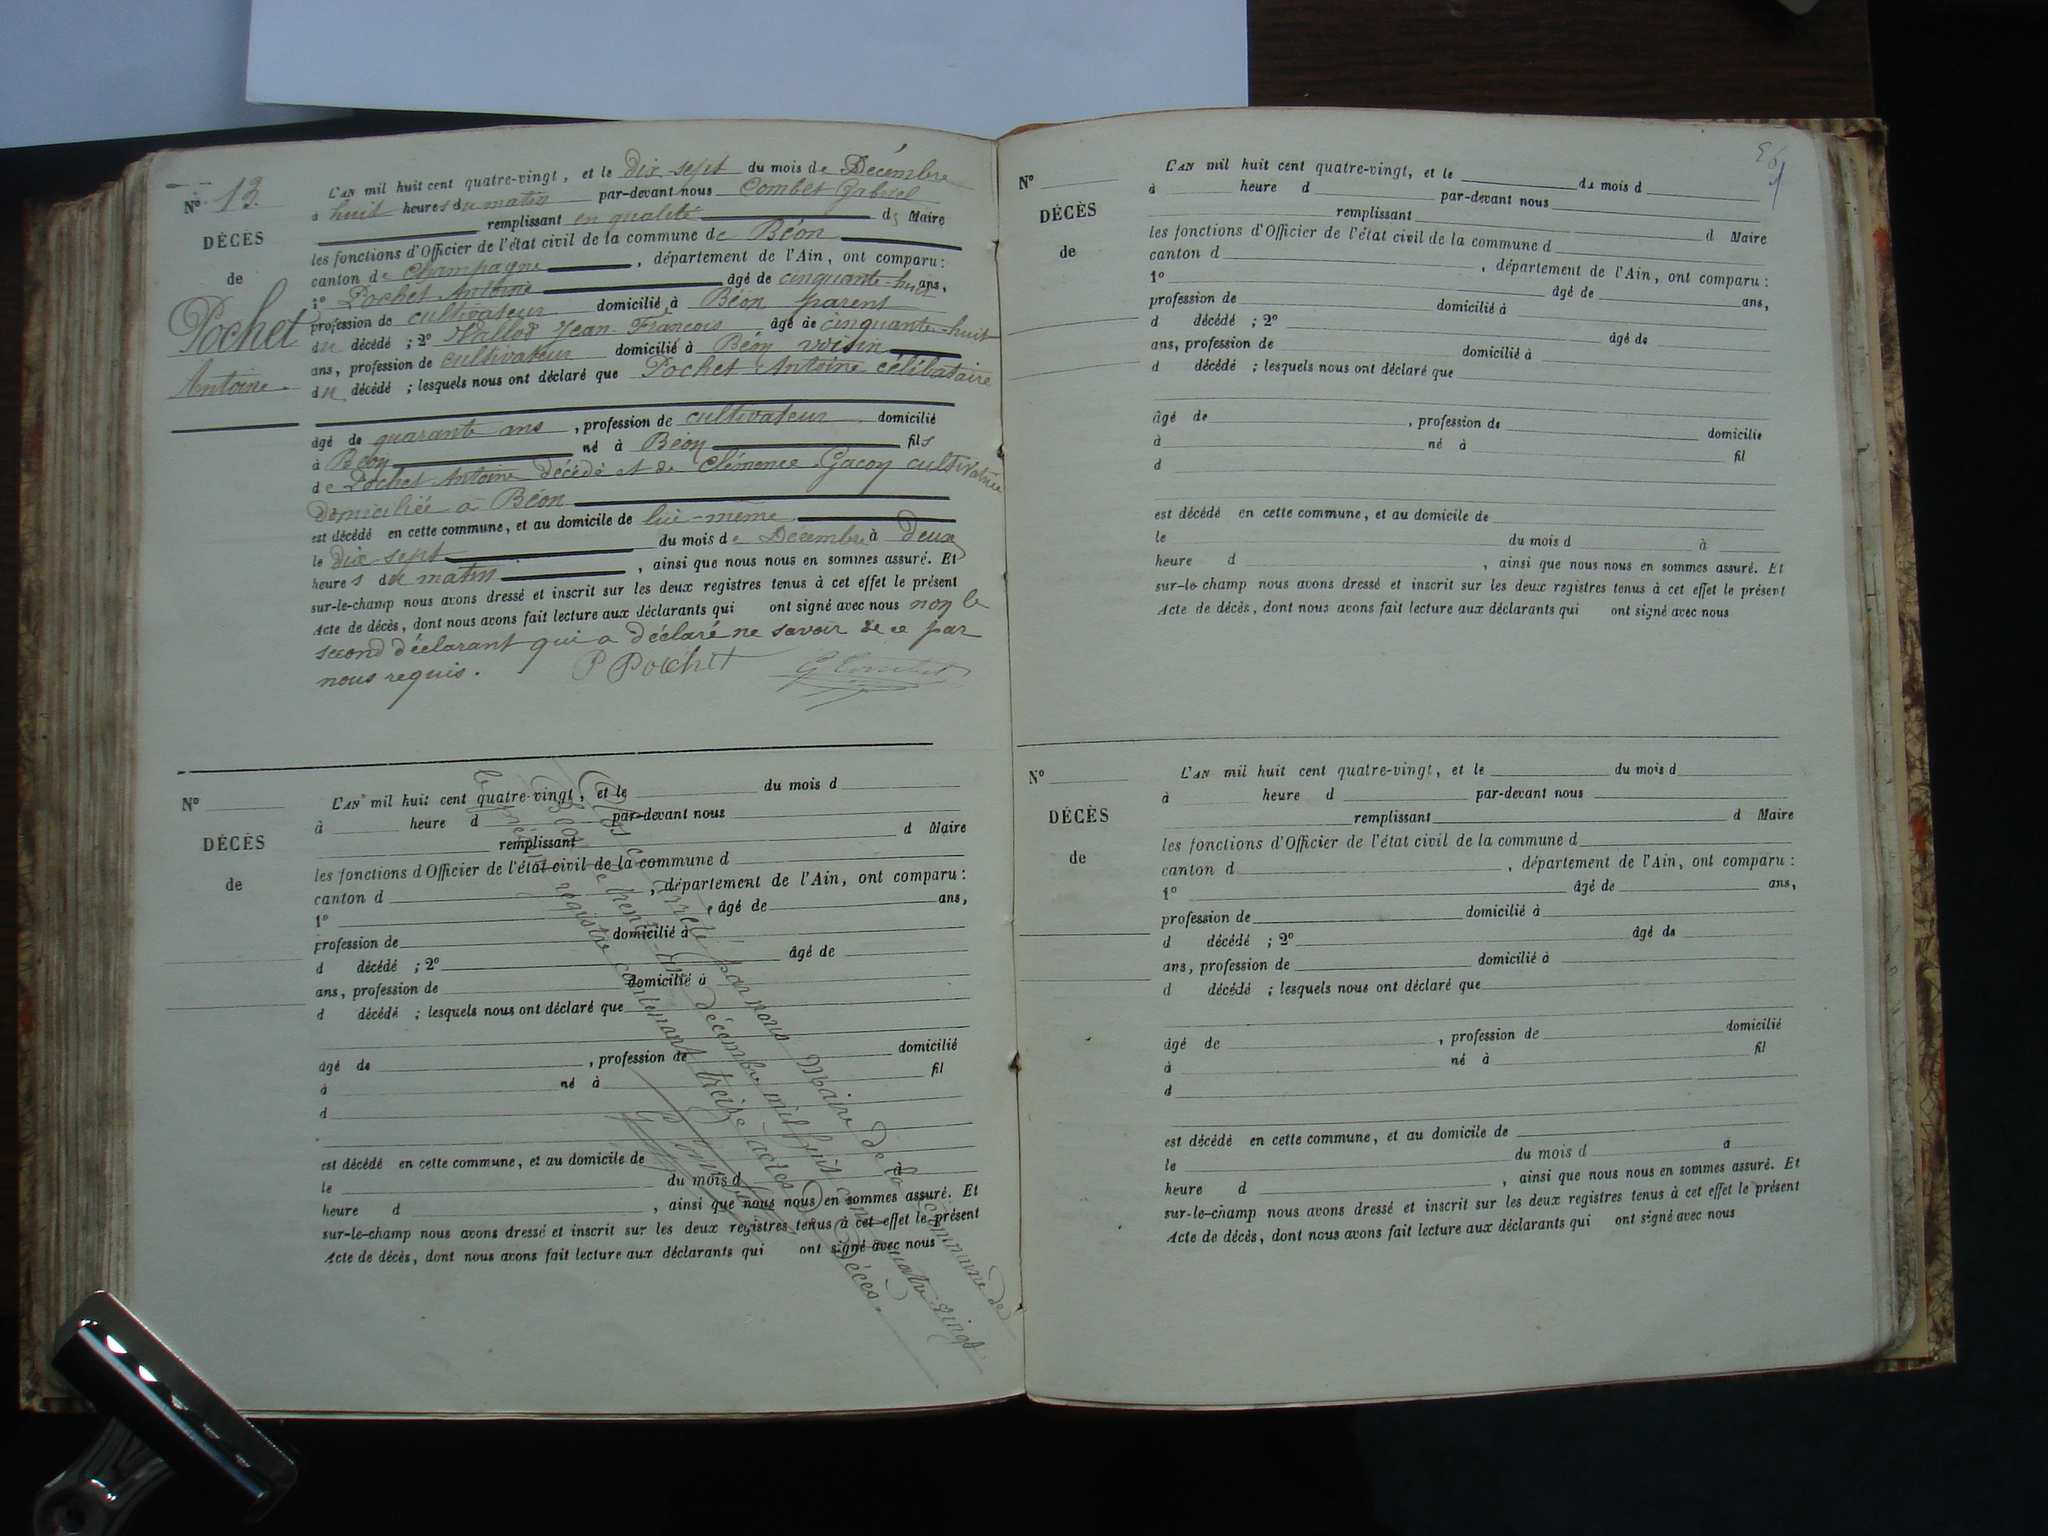 N° 13.
DÉCÈS
de
Pochet
Antoine
L'AN mil huit cent quatre-vingt, et le dix sept du mois de Décembre
à huit heures du matin par-devant nous Combet Gabriel
remplissant en qualité de Maire
les fonctions d'Officier de l'état civil de la commune de Béon
canton de Champagne, département de l'Ain, ont comparu :
1° Pochet Antoine âgé de cinquante-huit ans,
profession de cultivateur domicilié à Béon parent
du décédé ; 2° Vallod Jean François âgé de cinquante-huit
ans, profession de cultivateur domicilié à Béon voisin
du décédé ; lesquels nous ont déclaré que Pochet Antoine célibataire
âgé de quarante ans, profession de cultivateur domicilié
à Béon né à Béon fils
de Pochet Antoine décédé et de Clémence Gacon cultivatrice
domiciliée à Béon
est décédé en cette commune, et au domicile de lui-même
le dix sept du mois de Décembre à deux
heures du matin, ainsi que nous nous en sommes assuré. Et
sur-le-champ nous avons dressé et inscrit sur les deux registres tenus à cet effet le présent
Acte de décès, dont nous avons fait lecture aux déclarants qui ont signé avec nous non le
second déclarant qui a déclaré ne savoir de ce par
nous requis.
P Pochet G Combet
N°
DÉCÈS
de
L'AN mil huit cent quatre-vingt, et le du mois d
à heure d par-devant nous
remplissant d Maire
les fonctions d'Officier de l'état civil de la commune d
canton d, département de l'Ain, ont comparu :
1°, âgé de ans,
profession de domicilié à
d décédé ; 2° âgé de
ans, profession de domicilié à
d décédé ; lesquels nous ont déclaré que
âgé de, profession de domicilié
à né à fil
d
est décédé en cette commune, et au domicile de
le du mois d à
heure d, ainsi que nous nous en sommes assuré. Et
sur-le-champ nous avons dressé et inscrit sur les deux registres tenus à cet effet le présent
Acte de décès, dont nous avons fait lecture aux déclarants qui ont signé avec nous
Clos et arrêté par nous Maire de la commune de
Béon le trente-un décembre mil huit cent quatre vingt
le présent registre contenant treize actes de Décès.
G Combet
N°
DÉCÈS
de
L'AN mil huit cent quatre-vingt, et le du mois d
à heure d par-devant nous
remplissant d Maire
les fonctions d'Officier de l'état civil de la commune d
canton d, département de l'Ain, ont comparu :
1° âgé de ans,
profession de domicilié à
d décédé ; 2° âgé de
ans, profession de domicilié à
d décédé ; lesquels nous ont déclaré que
âgé de, profession de domicilié
à né à fil
d
est décédé en cette commune, et au domicile de
le du mois d à
heure d, ainsi que nous nous en sommes assuré. Et
sur-le-champ nous avons dressé et inscrit sur les deux registres tenus à cet effet le présent
Acte de décès, dont nous avons fait lecture aux déclarants qui ont signé avec nous
N°
DÉCÈS
de
L'AN mil huit cent quatre-vingt, et le du mois d
à heure d par-devant nous
remplissant d Maire
les fonctions d'Officier de l'état civil de la commune d
canton d, département de l'Ain, ont comparu :
1° âgé de ans,
profession de domicilié à
d décédé ; 2° âgé de
ans, profession de domicilié à
d décédé ; lesquels nous ont déclaré que
âgé de, profession de domicilié
à né à fil
d
est décédé en cette commune, et au domicile de
le du mois d à
heure d, ainsi que nous nous en sommes assuré. Et
sur-le-champ nous avons dressé et inscrit sur les deux registres tenus à cet effet le présent
Acte de décès, dont nous avons fait lecture aux déclarants qui ont signé avec nous